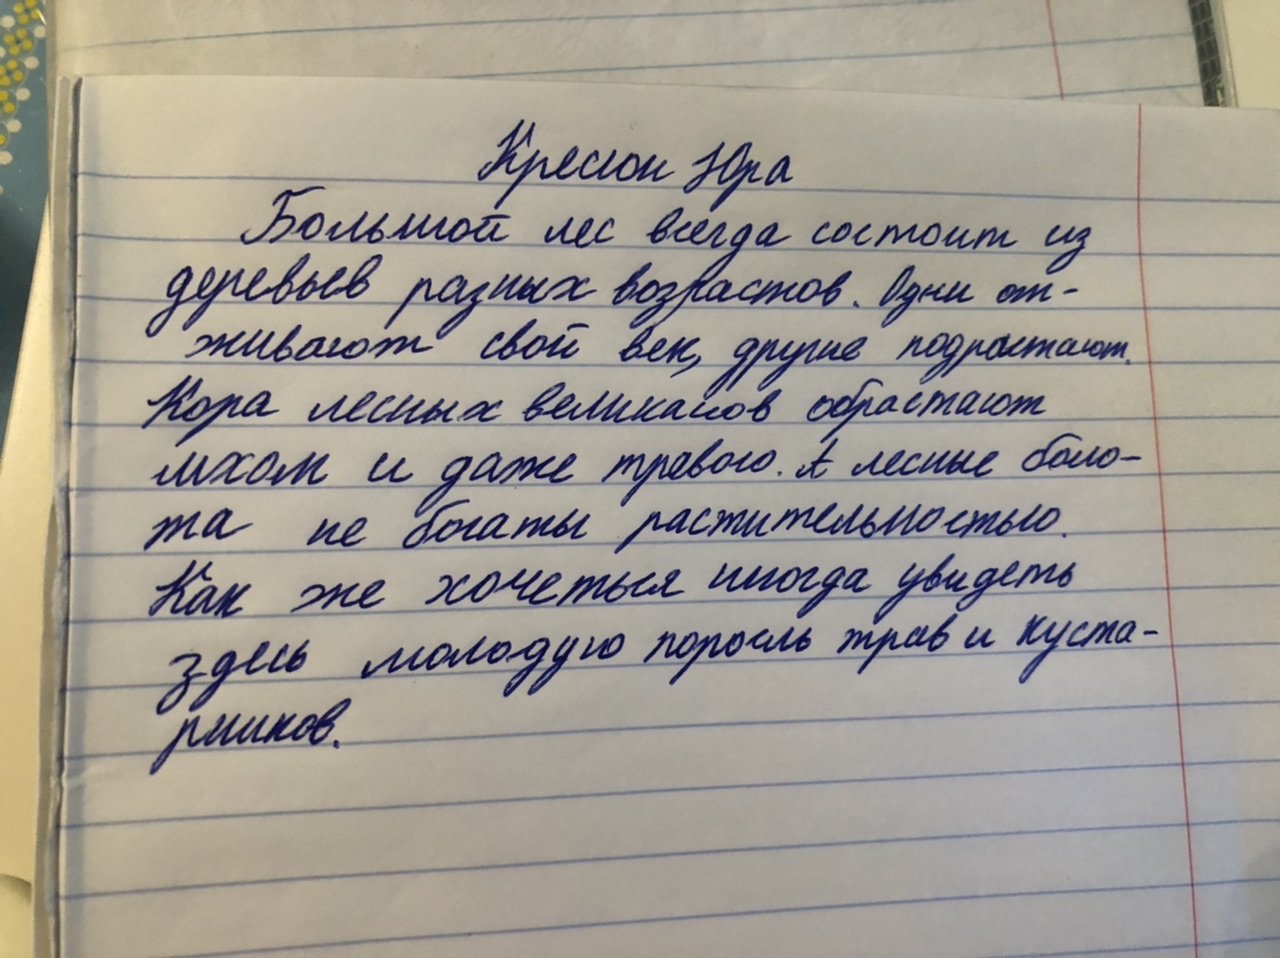 Кресюн Юра
Большой лес всегда состоит из
деревьев разных возрастов. Одни от-
живают свой век, другие подрастают.
Кора лесных великанов обрастают
мхом и даже травою. А лесные боло-
та не богаты растительностью.
Как же хочеться иногда увидеть
здесь молодую поросль трав и куста-
рников.